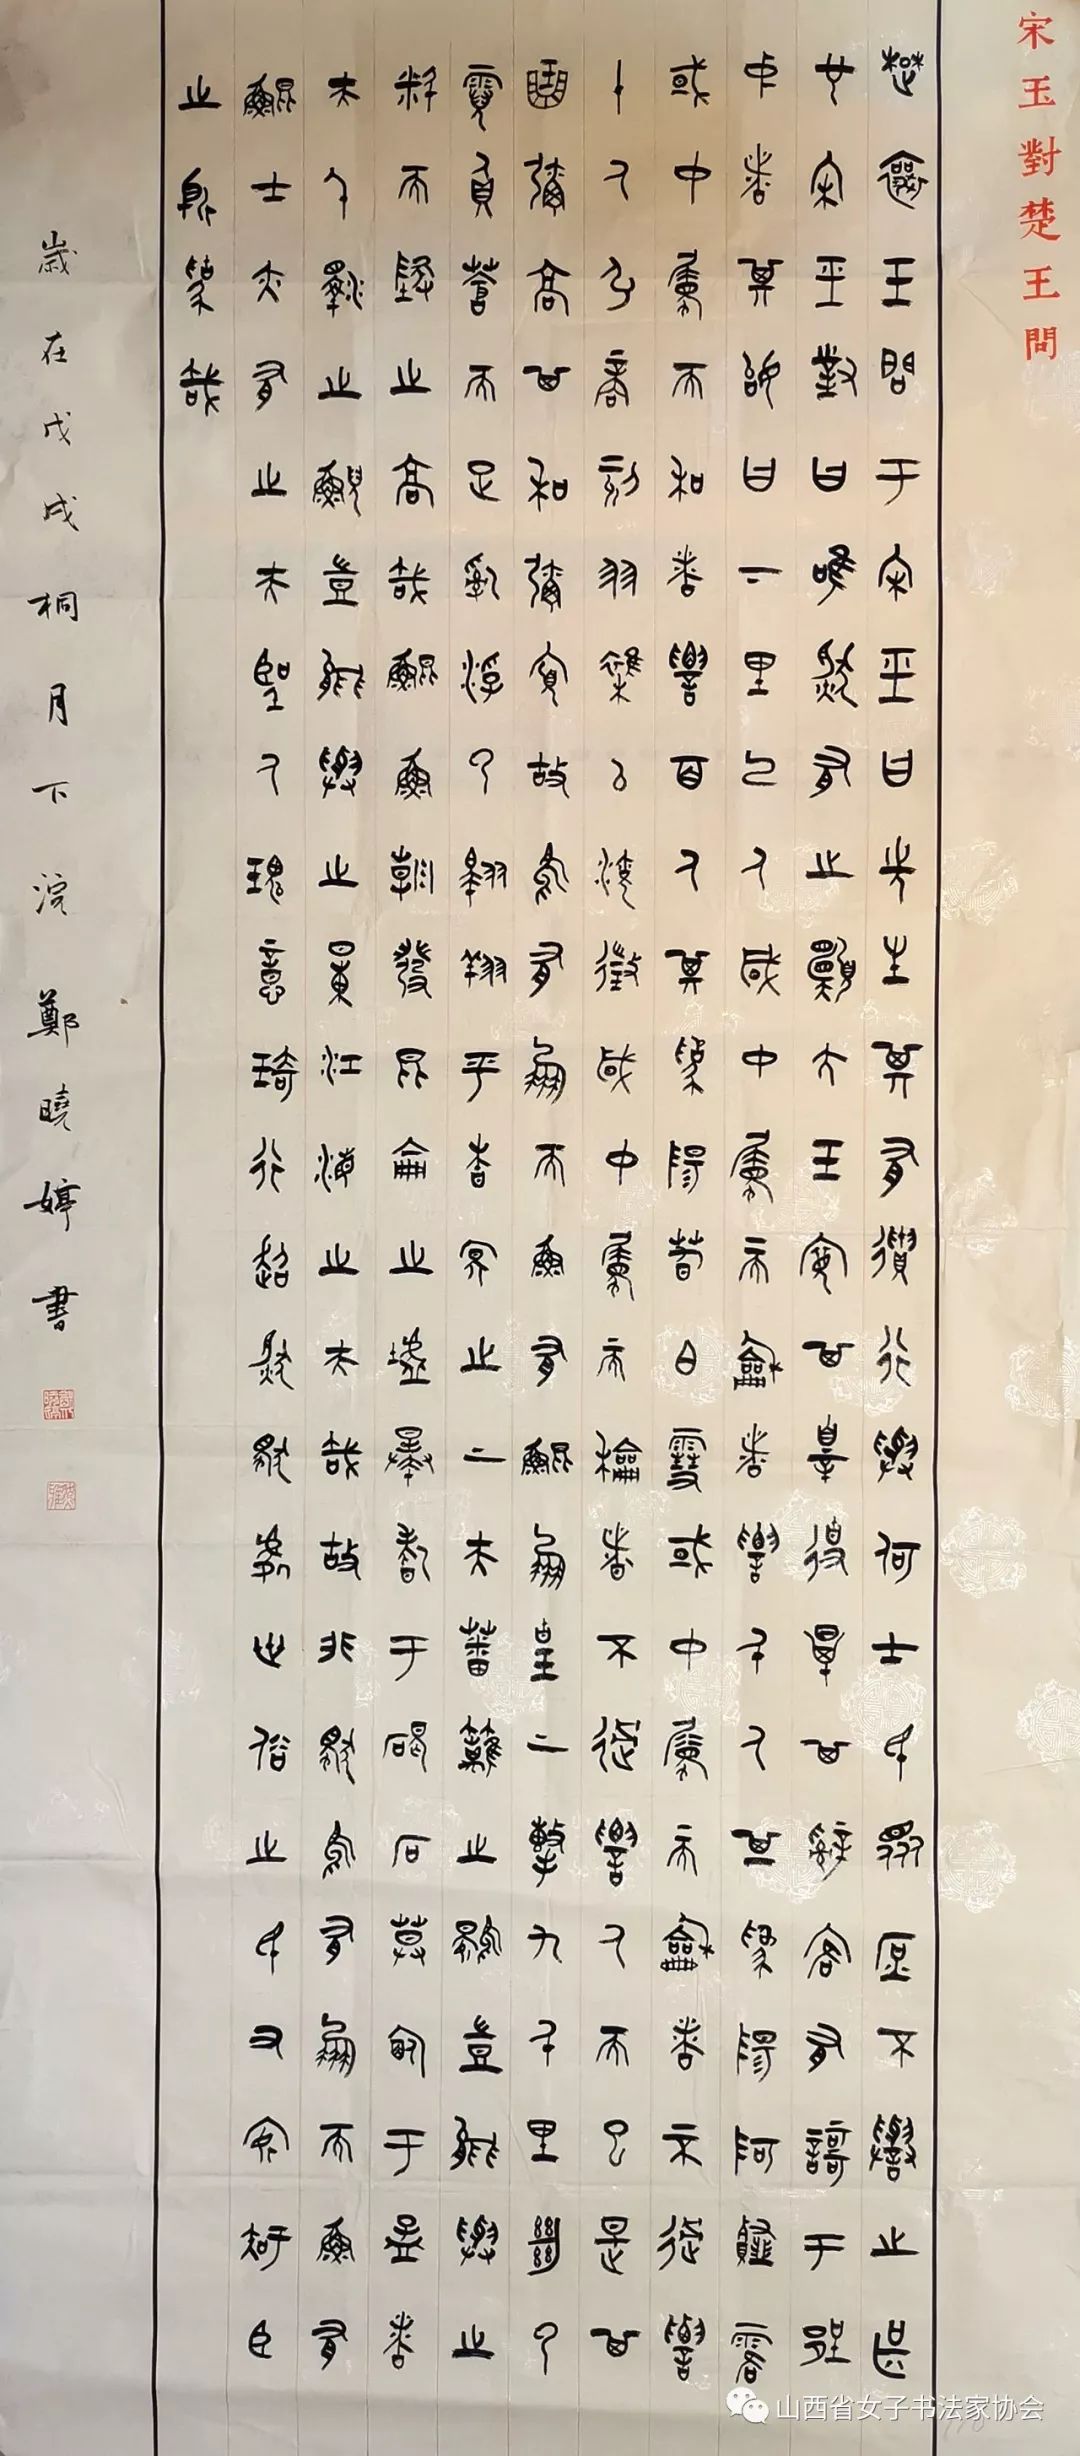 宋玉對楚王問
楚襄王問于宋玉曰先生其有遺行與何士民眾庶不譽之甚
也宋玉對曰唯然有之願大王寬其罪得畢其辭客有歌于郢
中者其始曰下里巴人國中屬而和者數千人其為陽阿薤露
國中屬而和者數百人其為陽春白雪國中屬而和者不過數
十人引商刻羽雜以流徵國中屬而和者不過數人而已是其
曲彌高其和彌寡故鳥有鳳而魚有鯤鳳皇上擊九千里絕雲
霓負蒼天足亂浮雲翱翔乎杳冥之上夫蕃籬之鷃豈能與之
料天地之高哉鯤魚朝發昆侖之墟暴鬐于碣石暮宿于孟諸
夫尺澤之鯢豈能與之量江海之大哉故非獨鳥有鳳而魚有
鯤士亦有之夫聖人瑰意琦行超然獨處世俗之民又安知臣
之所為哉
歲在戊戌桐月下浣鄭曉婷書
山西省女子书法家协会